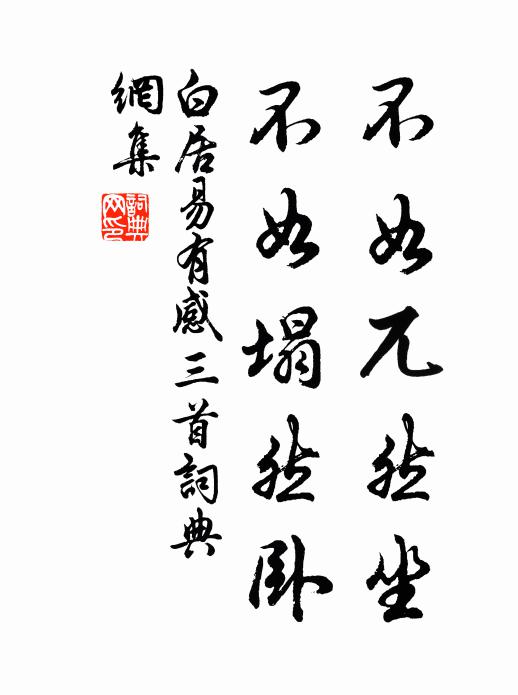 不如兀然坐
不如塌然卧
白居易有感三首詞典
網集
詞典網印